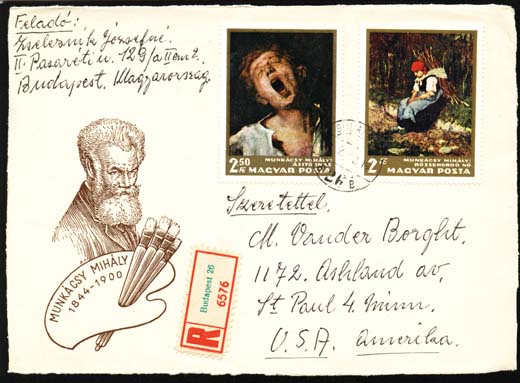 Feladó:
Zselesznik Józsefné.
II. Pasaréti u. 129/a II em 2.
Budapest, Magyarország.
2 50
Ft
MUNKÁCSY MIHÁLY
ÁSÍTÓ INAS
MAGYAR POSTA
2 Ft
MUNKÁCSY MIHÁLY
RŐZSEHORDÓ NŐ
MAGYAR POSTA
Szeretettel.
M. Vander Borght,
1172. Ashland av,
St Paul 4. Minn.
U.S.A. Amerika.
MUNKÁCSY MIHÁLY
1844-1900
R
Budapest 26
6576